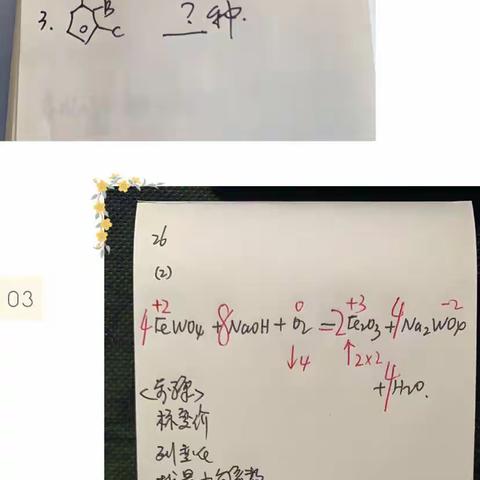 3. B C ? 种.
03
26
(2)
+2 0 +3 -2
4FeWO4 + 8NaOH + O2 = 2Fe2O3 + 4Na2WO4
↓4 ↑2×2
+4H2O.
<步骤>
标变价
列变化